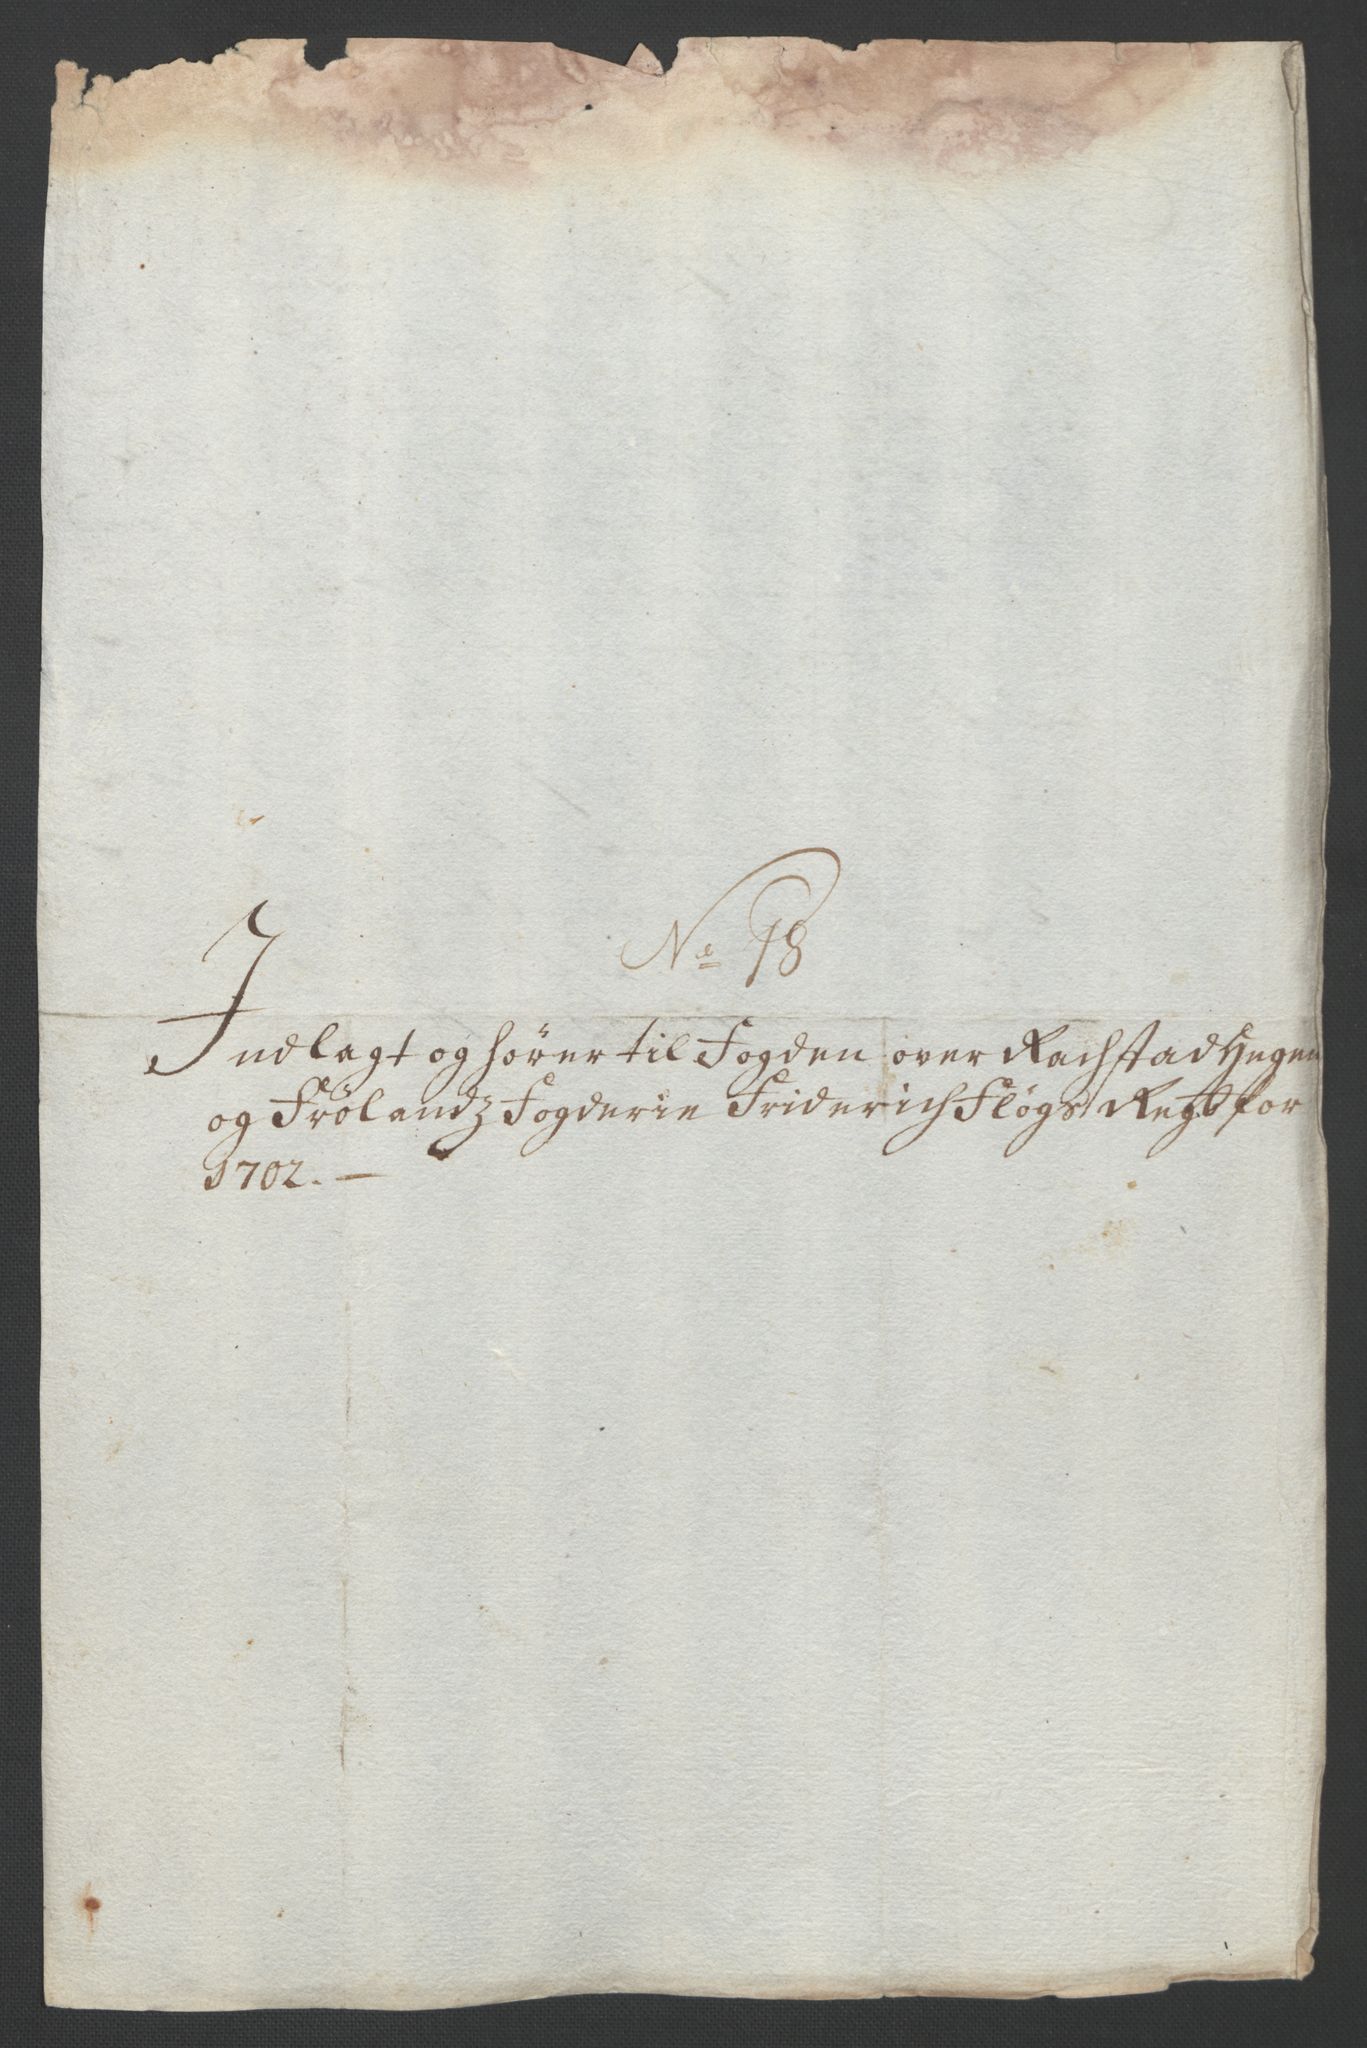 No 18
Indlagt og hörer til Fogden over Rachstad Heggen
og Frölandz Fogderie Friderich Flögs Regsk for
1702.—